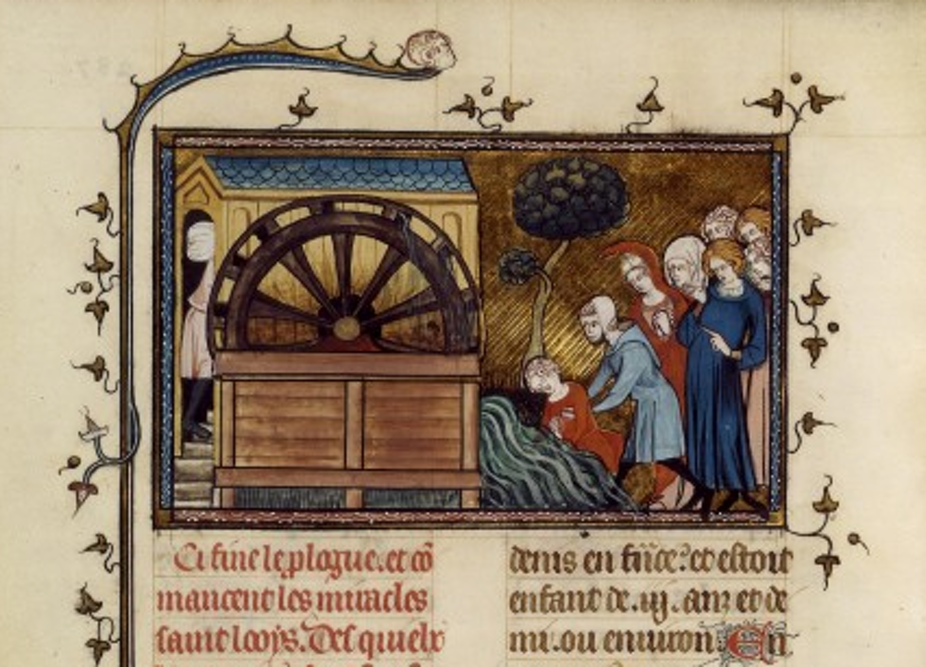 Ci fine le plogue. et cō
mancent les miracles
saint looys. Des quielx
denis en fn̄ce. et estoit
enfant de .iij. anz et de
mi. ou enuiron En